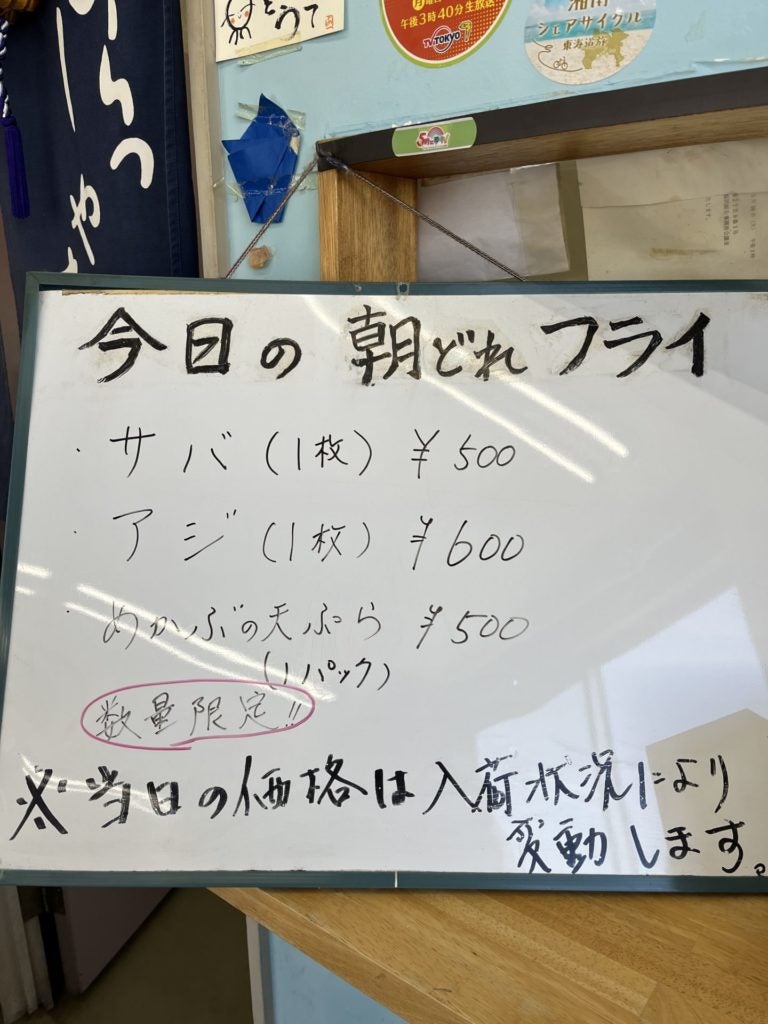 とうて
午後3時40分生放送
TV TOKYO
湘南
シェアサイクル
東海道
らっ
しゃ
今日の 朝どれフライ
・サバ(1枚) ¥500
・アジ(1枚) ¥600
・めかぶの天ぷら ¥500
(1パック)
数量限定!!
※当日の価格は入荷状況により
変動します。